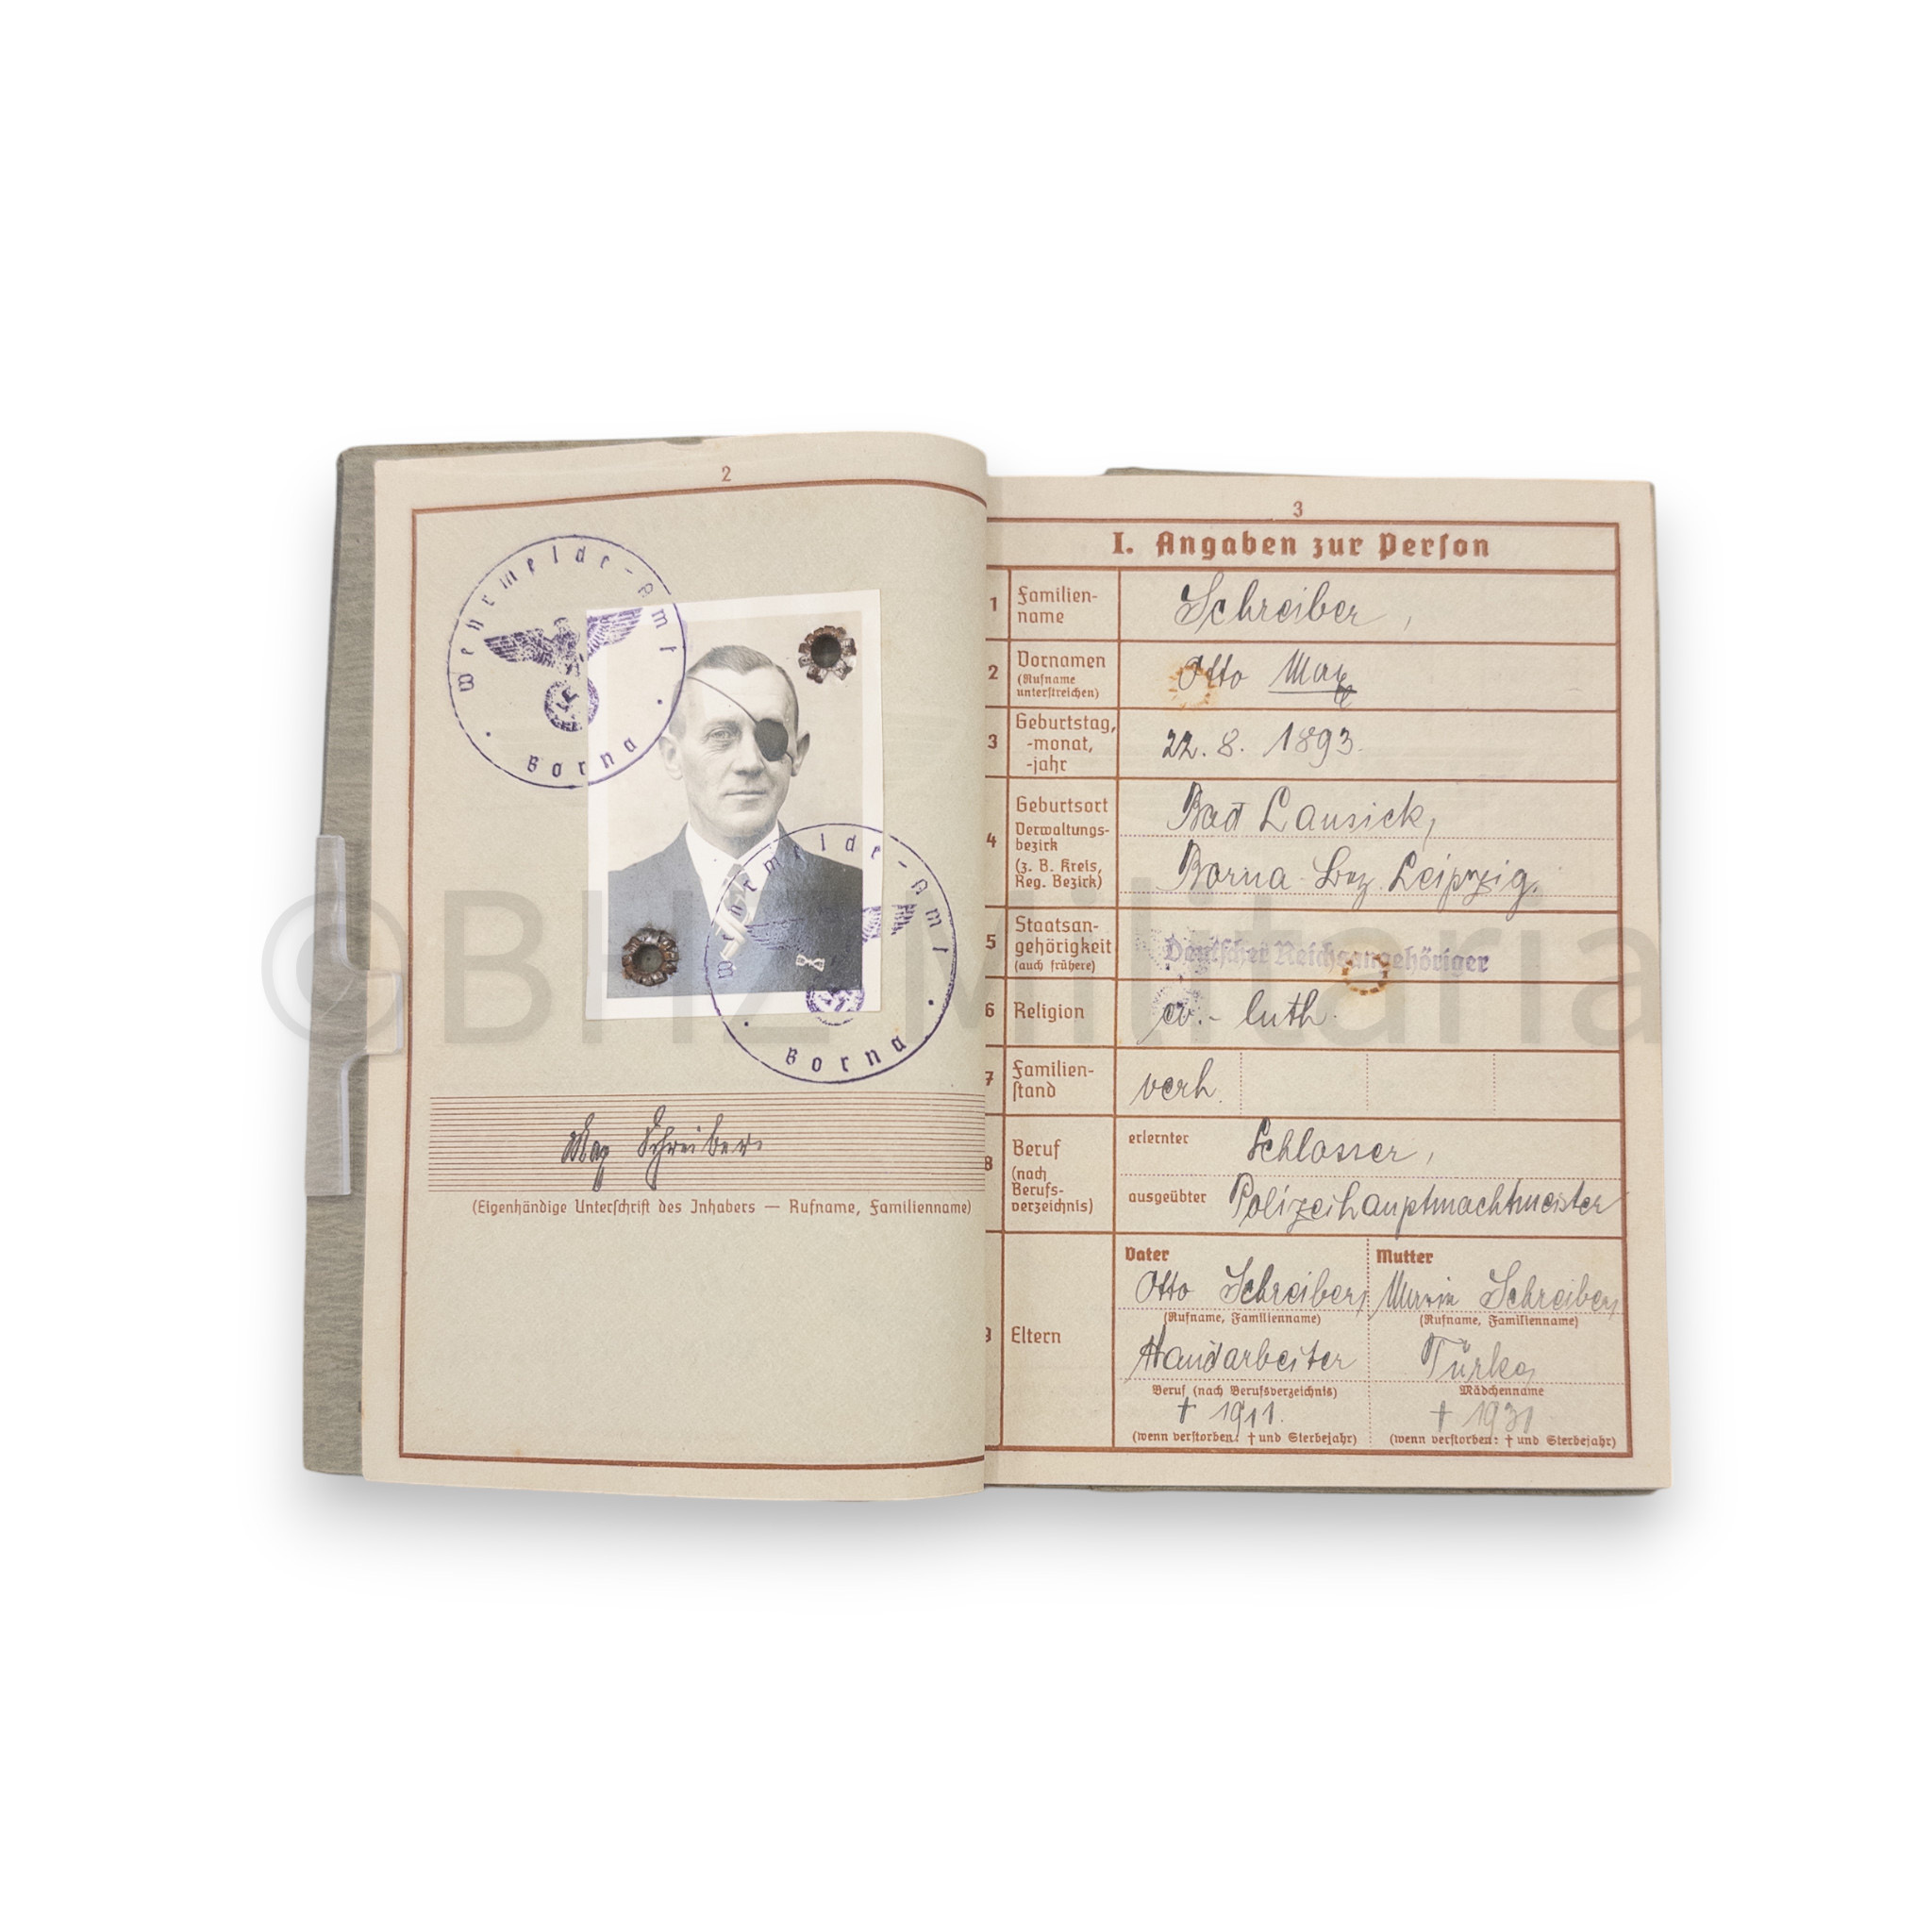 2
Wehrmelde-Amt
Borna
Wehrmelde-Amt
Borna
Max Schreiber.
(Eigenhändige Unterschrift des Inhabers — Rufname, Familienname)
3
I. Angaben zur Person
1 Familien-
name
Schreiber,
2 Vornamen
(Rufname
unterstreichen)
Otto Max
3 Geburtstag,
-monat,
-jahr
22. 8. 1893.
4 Geburtsort
Verwaltungs-
bezirk
(z. B. Kreis,
Reg. Bezirk)
Bad Lausick,
Borna Bez. Leipzig.
5 Staatsan-
gehörigkeit
(auch frühere)
Deutscher Reichsangehöriger
6 Religion
ev.- luth.
7 Familien-
stand
verh.
8 Beruf
(nach
Berufs-
verzeichnis)
erlernter Schlosser,
ausgeübter Polizeihauptwachtmeister
9 Eltern
Vater
Otto Schreiber,
(Rufname, Familienname)
Handarbeiter
Beruf (nach Berufsverzeichnis)
† 1911.
(wenn verstorben: † und Sterbejahr)
Mutter
Schreiber,
(Rufname, Familienname)
Mädchenname
† 1931
(wenn verstorben: † und Sterbejahr)
©BHZ Militaria